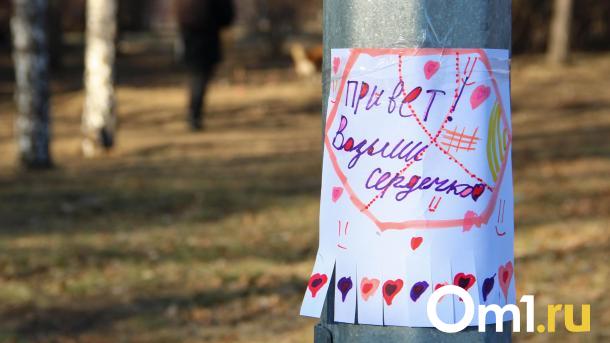 Привет!
Возьми
сердечко
Om1.ru